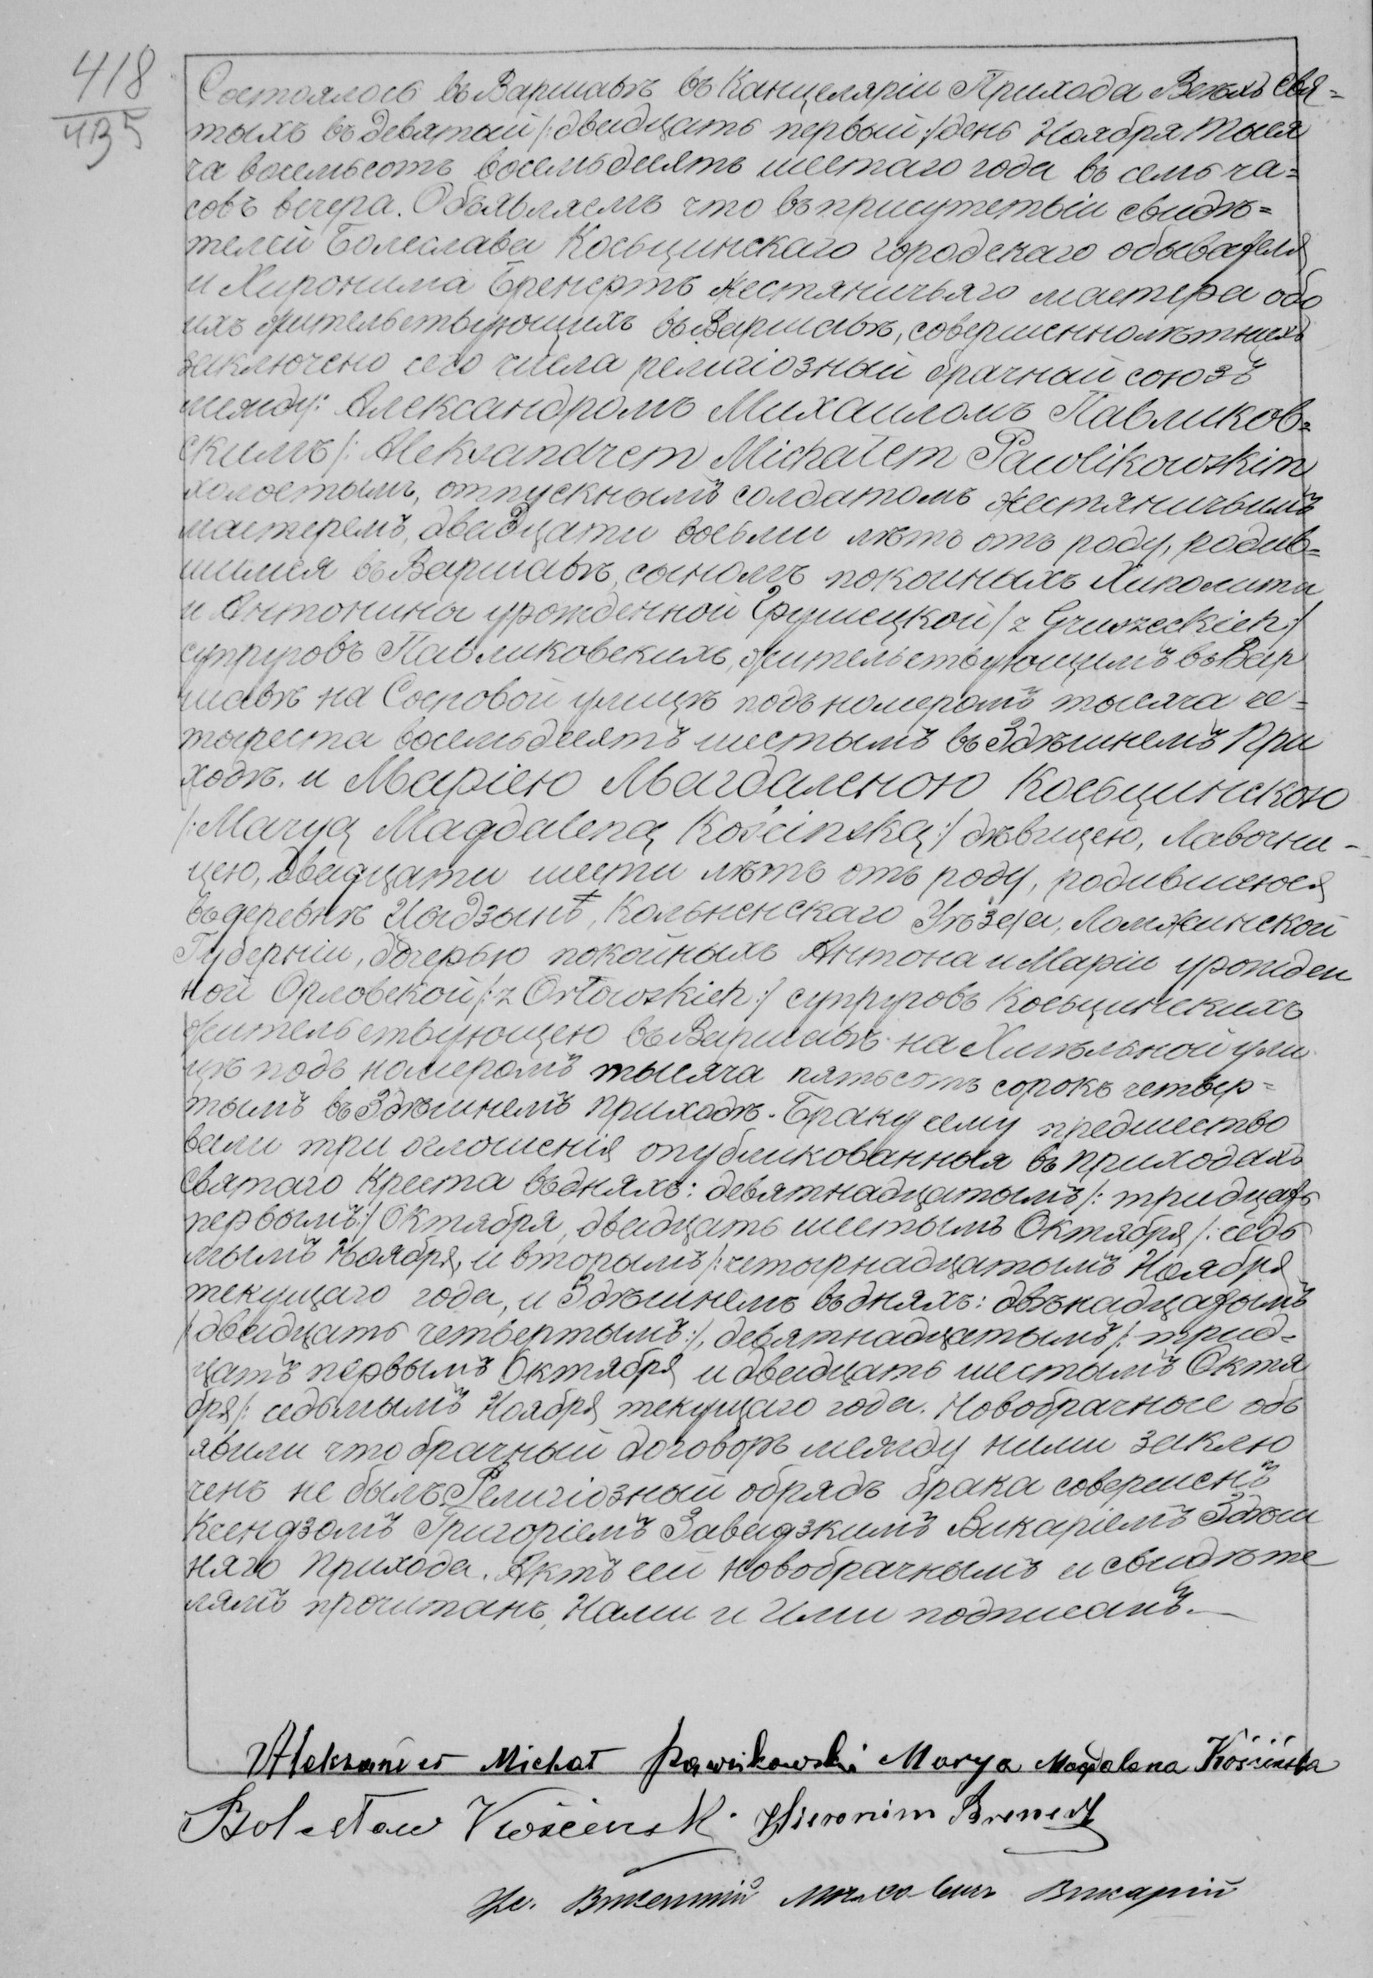 418
435
Состоялось въ Варшавѣ въ Канцеляріи Прихода Всѣхъ Свя=
тыхъ въ девятый /:двадцать первый:/ день Ноября тыся
ча восемьсотъ восемьдесятъ шестаго года въ семь ча=
совъ вечера. Объявляемъ что въ присутствіи свидѣ=
телей Болеслава Косьцинскаго городскаго обывателя
и Хиронима Бренертъ жестяничьяго мастера обо
ихъ жительствующихъ въ Варшавѣ, совершеннолѣтнихъ
заключено сего числа религіозный брачный союзъ
между: Александромъ Михаиломъ Павликов=
скимъ /: Aleksandrem Michałem Pawlikowskim
холостымъ, отпускнымъ солдатомъ жестяничьимъ
мастеремъ, двадцати восьми лѣтъ отъ роду, родив=
шимся въ Варшавѣ, сыномъ покойныхъ Хиполита
и Антонины урожденной Грушецкой /z Gruszeckich:/
супруговъ Павликовскихъ, жительствующимъ въ Вар
шавѣ на Сосновой улицѣ подъ номеромъ тысяча че=
тыреста восемьдесятъ шестымъ въ Здѣшнемъ При
ходѣ. и Маріею Магдаленою Косьцинскою
/:Maryą Magdaleną Kościnską:/ дѣвицею, Лавочни-
цею, двадцати шести лѣтъ отъ роду, родившеюся
въ деревнѣ, Кольненскаго Уѣзда, Ломжинской
Губерніи, дочерью покойныхъ Антона и Маріи урожден
ной Орловской /:z Orłowskich:/ супруговъ Косьцинскихъ
жительствующею въ Варшавѣ на Хмѣльной ули
цѣ подъ номеромъ тысяча пятьсотъ сорокъ четвер=
тымъ въ Здѣшнемъ приходѣ. Браку сему предшество
вали три оглошенія опубликованныя въ приходахъ
Святаго Креста въ дняхъ: девятнадцатымъ /: тридцать
первымъ:/ Октября, двадцать шестымъ Октября /: седь
мымъ Ноября, и вторымъ /:четырнадцатымъ Ноября
текущаго года, и Здѣшнемъ въ дняхъ: двѣнадцатымъ
/двадцать четвертымъ:/, девятнадцатымъ /: трид=
цать первымъ Октября и двадцать шестымъ Октя
бря /: седьмымъ Ноября текущаго года. Новобрачные объ
явили что брачный договоръ между ними заклю
ченъ не былъ. Религіозный обрядъ брака совершенъ
Ксендзомъ Григоріемъ Завадзкимъ Викаріемъ Здѣш
няго Прихода. Актъ сей новобрачнымъ и свидѣте
лямъ прочитанъ, Нами и Ими подписанъ.—
Aleksander Michał Pawlikowski Marya Magdalena Kościńska
Bolesław Kościensk. Hieronim Brenert
Викарій